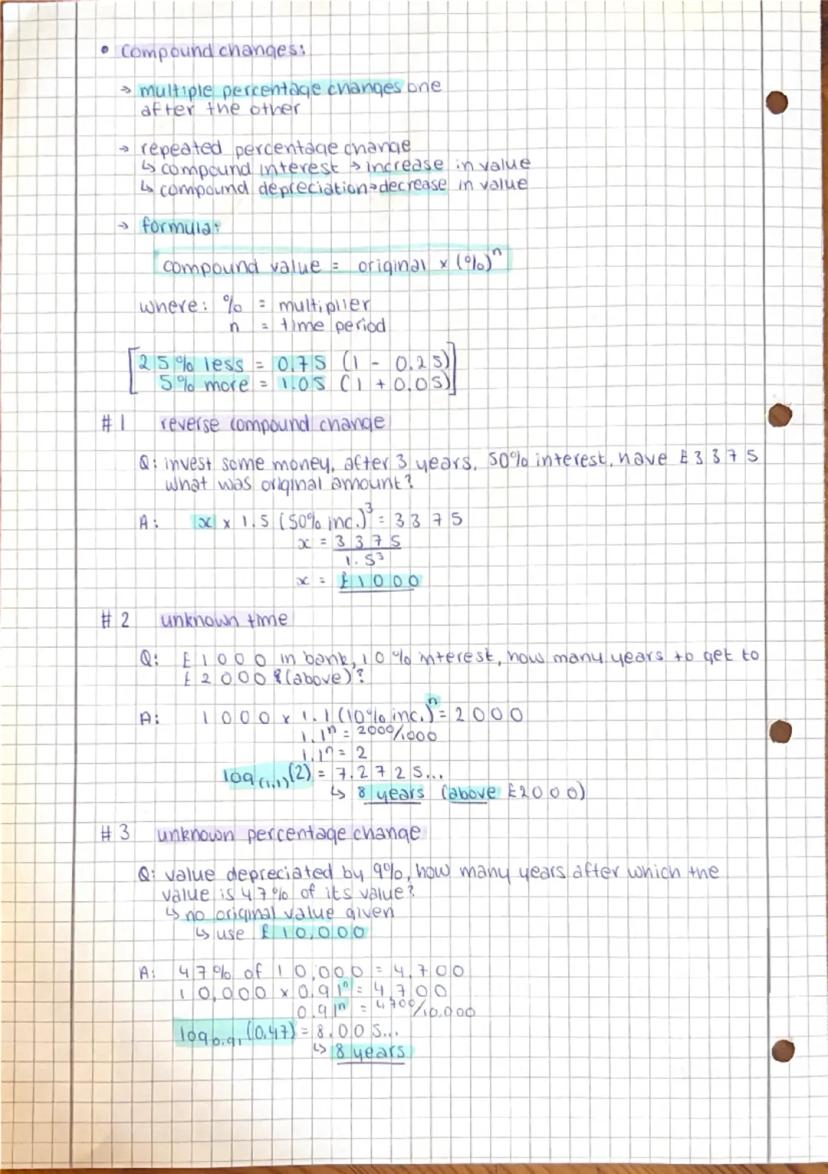 • compound changes:
→ multiple percentage changes one
after the other
→ repeated percentage change
↳ compound interest → increase in value
↳ compound depreciation → decrease in value
→ formula:
compound value = original × (%)ⁿ
where: % = multiplier
n = time period
[25% less = 0.75 (1 - 0.25)
5% more = 1.05 (1 + 0.05)]
#1 reverse compound change
Q: invest some money, after 3 years, 50% interest, have £3375
what was original amount?
A: x × 1.5 (50% inc.)³ = 3375
x = 3375
1.5³
x = £1000
#2 unknown time
Q: £1000 in bank, 10% interest, how many years to get to
£2000 (above)?
A: 1000 × 1.1 (10% inc.)ⁿ = 2000
1.1ⁿ = 2000/1000
1.1ⁿ = 2
log(1.1)(2) = 7.2725...
↳ 8 years (above £2000)
#3 unknown percentage change
Q: value depreciated by 9%, how many years after which the
value is 47% of its value?
↳ no original value given
↳ use £10,000
A: 47% of 10,000 = 4,700
10,000 × 0.91ⁿ = 4,700
0.91ⁿ = 4700/10,000
log0.91(0.47) = 8.005...
↳ 8 years